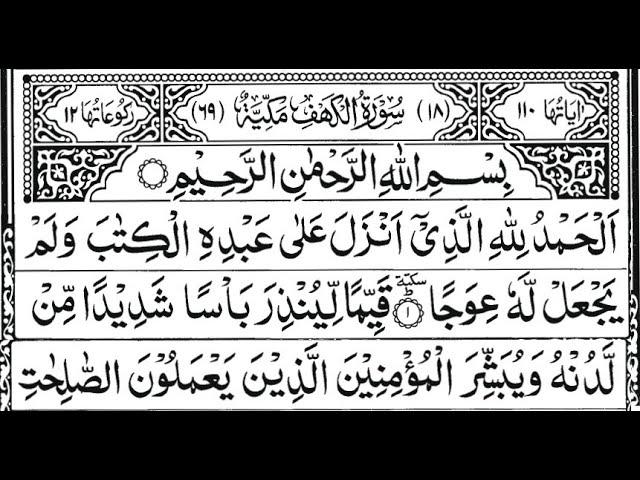 اٰيَاتُهَا ١١٠ (١٨) سُوْرَةُ الْكَهْفِ مَكِّيَّةٌ (٦٩) رُكُوْعَاتُهَا ١٢
بِسْمِ اللّٰهِ الرَّحْمٰنِ الرَّحِيْمِ
اَلْحَمْدُ لِلّٰهِ الَّذِيْٓ اَنْزَلَ عَلٰى عَبْدِهِ الْكِتٰبَ وَلَمْ
يَجْعَلْ لَّهٗ عِوَجًا ١ سكتة قَيِّمًا لِّيُنْذِرَ بَاْسًا شَدِيْدًا مِّنْ
لَّدُنْهُ وَيُبَشِّرَ الْمُؤْمِنِيْنَ الَّذِيْنَ يَعْمَلُوْنَ الصّٰلِحٰتِ